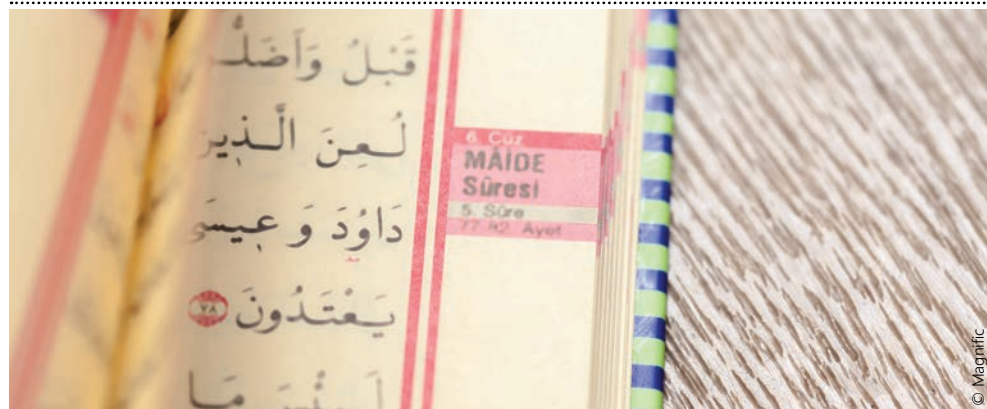 قَبْلُ وَأَضَلُّ
لُعِنَ الَّذ۪ينَ
دَاوُدَ وَع۪يسَى
يَعْتَدُونَ ﴿٧٨﴾
مَا
6. Cüz
MÂİDE
Sûresi
5. Sûre
77-82. Ayet
© Magnific